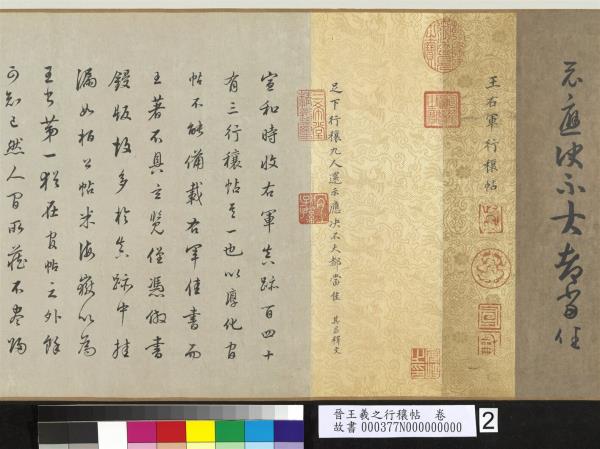 足下行穰九人還示應決不大都當佳
其昌釋文
王右軍行穰帖
示應決不大都當佳
宣和時收右軍真跡百四十
有三行穰帖其一也以淳化官
帖不能備載右軍佳書而
王著不具玄覽僅憑倣書
鋟版故多於真跡中挂
漏如桓公帖米海嶽以為
王書第一猶在官帖之外餘
可知已然人間所藏不盡歸
三希堂
晉王羲之行穰帖 卷
故書 000377N000000000
2